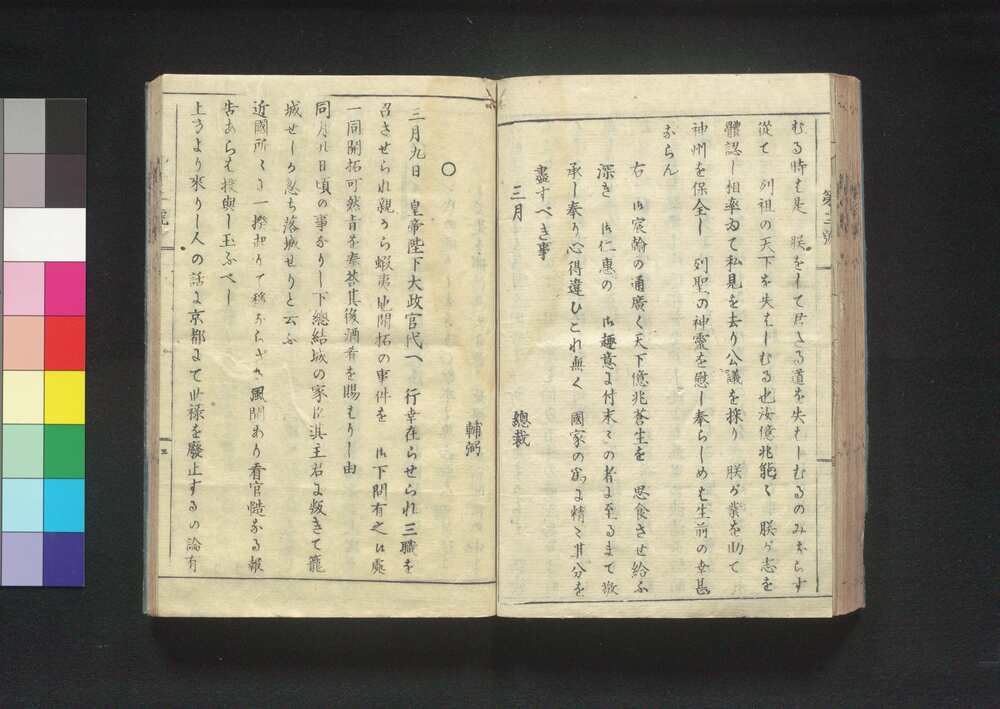 むる時も是　朕をして君たる道を失ハしむるのみならす
従て　列祖の天下を失ハしむる也汝億兆能く　朕が志を
體認し相率ゐて私見を去り公議を採り　朕が業を助て
神州を保全し　列聖の神靈を慰し奉らしめは生前の幸甚
ならん
右　御宸翰の通廣く天下億兆蒼生を　思食させ給ふ
深き　御仁惠の　御趣意に付末々の者に至るまて敬
承し奉り心得違ひこれ無く　國家の為に精々其分を
盡すべき事
三月　總裁
輔弼
○
三月九日　皇帝陛下大政官代へ　行幸在らせられ三職を
召させられ親から蝦夷地開拓の事件を　御下問有之候處
一同開拓可然旨を奏答其後酒肴を賜ハりし由
同月九日頃の事なりし下總結城の家臣其主君に叛きて籠
城せしが忽ち落城せりと云ふ
近國所々に一揆起りて穏ならさる風聞あり看官慥なる報
告あらは投與し玉ふべし
上方より來りし人の話に京都にて世祿を廢止するの論有
第二號